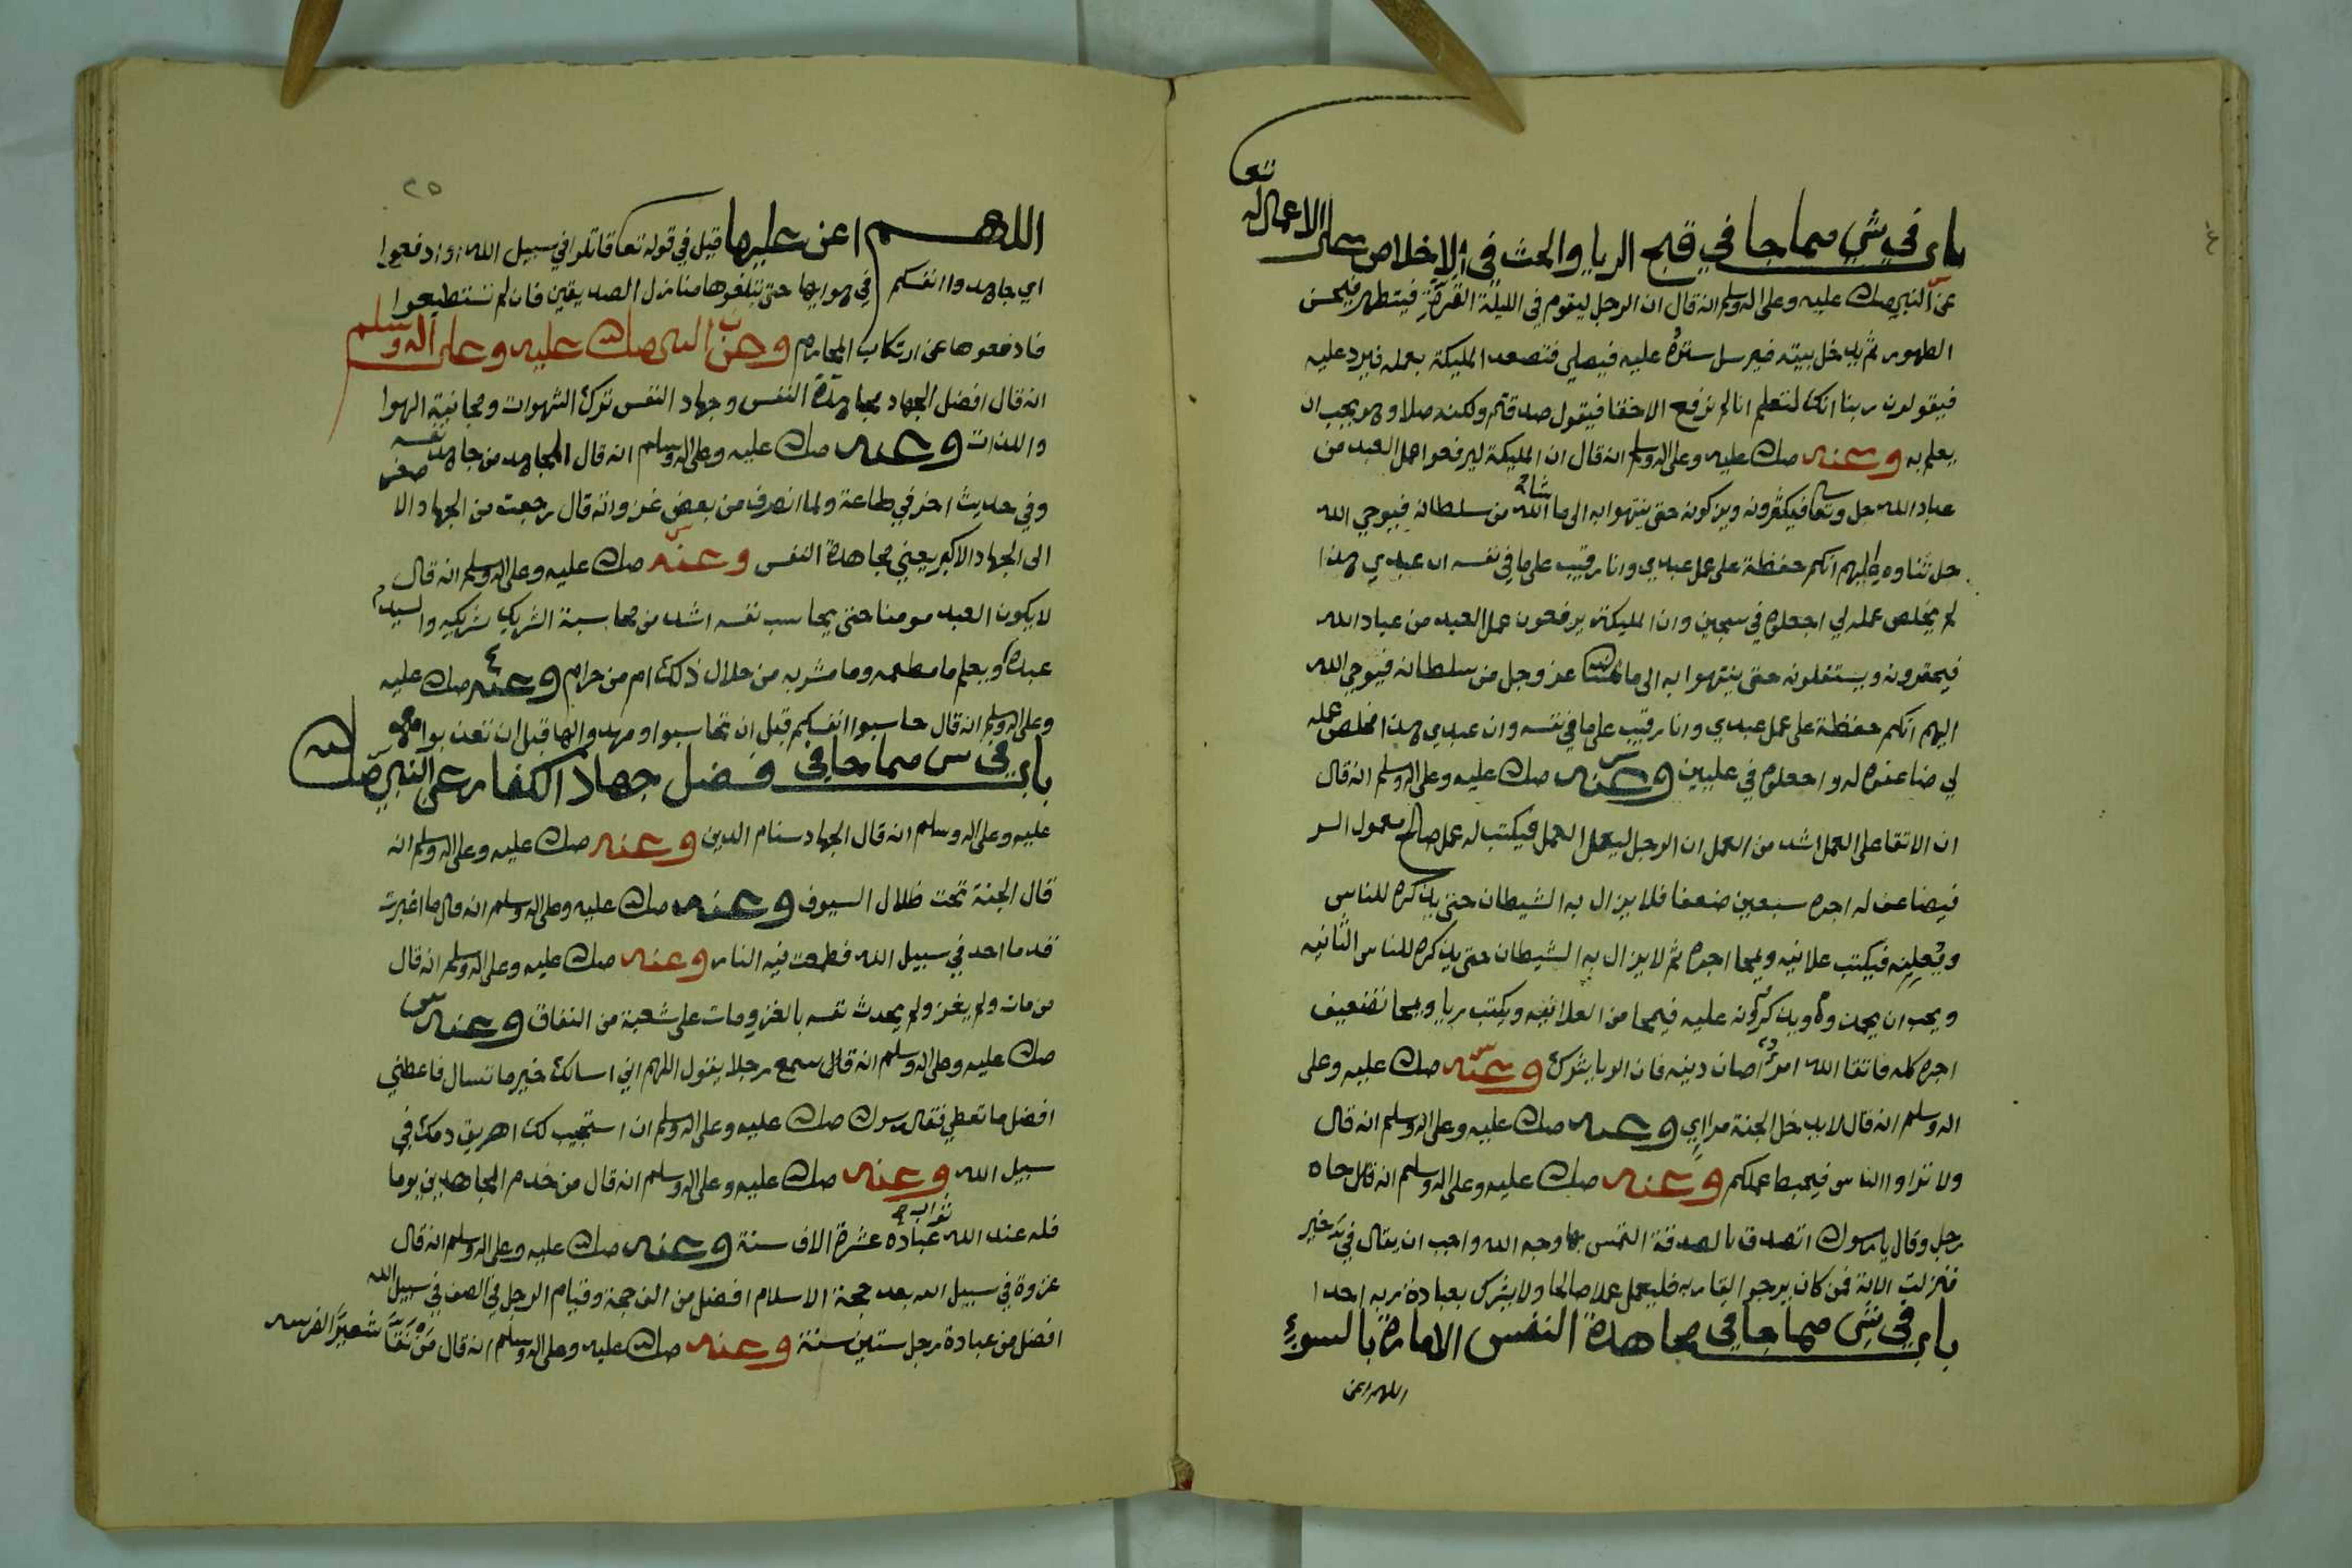 باب في شي مما جا في قبح الريا والحث في الاخلاص على الاعمال لله تعا
عن النبي صلى الله عليه وعلى اله وسلم انه قال ان الرجل ليقوم في الليلة القرة فيتطهر فيحسن
الطهور ثم يدخل بيته فيرسل ستره عليه فيصلي فتصعد المليكة بعمله فيرد عليه
فيقولون ربنا انك لتعلم انا لم نرفع الا حقا فيقول صدقتم ولكنه صلا وهو يحب ان
يعلم به وعنه صلى الله عليه وعلى اله وسلم انه قال ان المليكة ليرفعوا عمل العبد من
عباد الله جل وتعا فيكثرونه ويزكونه حتى ينتهوا به الى ما شا الله من سلطانه فيوحي الله
جل ثناوه اليهم انكم حفظة على عمل عبدي وانا رقيب على ما في نفسه ان عبدي هذا
لم يخلص عمله لي اجعلوه في سجين وان المليكة يرفعون عمل العبد من عباد الله
فيحقرونه ويستقلونه حتى ينتهوا به الى ما شا الله عز وجل من سلطانه فيوحي الله
اليهم انكم حفظة على عمل عبدي وانا رقيب على ما في نفسه وان عبدي هذا اخلص عمله
لي ضاعفوه له واجعلوه في عليين وعنه صلى الله عليه وعلى اله وسلم انه قال
ان الاتقا على العمل اشد من العمل ان الرجل ليعمل العمل فيكتب له عمل صالح معمول السر
فيضاعف له اجره سبعين ضعفا فلا يزال به الشيطان حتى يذكره للناس
ويعلنه فيكتب علانيه ويمحا اجره ثم لا يزال به الشيطان حتى يذكره للناس الثانيه
ويحب ان يحمدوه ويذكرونه عليه فيمحا من العلانيه ويكتب ريا ويمحا تضعيف
اجره كله فاتقا الله امرؤ صان دينه فان الريا شرك وعنه صلى الله عليه وعلى
اله وسلم انه قال لا يدخل الجنة مراي وعنه صلى الله عليه وعلى اله وسلم انه قال
ولا تراووا الناس فيحبط عملكم وعنه صلى الله عليه وعلى اله وسلم انه قال جاه
رجل وقال يا رسول الله اتصدق بالصدقة التمس بها وجه الله واحب ان يقال في خير
فنزلت الاية فمن كان يرجو القا ربه فليعمل عملا صالحا ولا يشرك بعبادة ربه احدا
باب في شي مما جا في مجاهدة النفس الامارة بالسوء
اللهم اعن
٢٥
اللهم اعن عليها قيل في قوله تعا قاتلوا في سبيل الله او ادفعوا
اي جاهدوا انفسكم في هوايها حتى تبلغوها منازل الصديقين فان لم تستطيعوا
فادفعوها عن ارتكاب المحارم وعن النبي صلى الله عليه وعلى اله وسلم
انه قال افضل الجهاد مجاهدة النفس وجهاد النفس ترك الشهوات ومجانبة الهوا
واللذات وعنه صلى الله عليه وعلى اله وسلم انه قال المجاهد من جاهد نفسه
وفي حديث اخر في طاعة ولما انصرف من بعض غزواته قال رجعت من الجهاد الاصغر
الى الجهاد الاكبر يعني مجاهدة النفس وعنه صلى الله عليه وعلى اله وسلم انه قال
لا يكون العبد مومنا حتى يحاسب نفسه اشد من محاسبة الشريك شريكه والسيد
عبده ويعلم ما مطعمه وما مشربه من حلال ذلك ام من حرام وعنه صلى الله عليه
وعلى اله وسلم انه قال حاسبوا انفسكم قبل ان تحاسبوا ومهدوا لها قبل ان تعذبوا
باب في شي مما جا في فضل جهاد الكفار عن النبي صلى الله
عليه وعلى اله وسلم انه قال الجهاد سنام الدين وعنه صلى الله عليه وعلى اله وسلم انه
قال الجنة تحت ظلال السيوف وعنه صلى الله عليه وعلى اله وسلم انه قال ما اغبرت
قدما احد في سبيل الله فطمعت فيه النار وعنه صلى الله عليه وعلى اله وسلم انه قال
من مات ولم يغز ولم يحدث نفسه بالغزو مات على شعبة من النفاق وعنه
صلى الله عليه وعلى اله وسلم انه قال سمع رجلا يقول اللهم اني اسالك خير ما تسال فاعطني
افضل ما تعطي فقال رسول الله صلى الله عليه وعلى اله وسلم ان استجيب لك اهريق دمك في
سبيل الله وعنه صلى الله عليه وعلى اله وسلم انه قال من خدم المجاهدين يوما
فله عند الله ثواب عباده عشرة الاف سنة وعنه صلى الله عليه وعلى اله وسلم انه قال
غزوة في سبيل الله بعد حجة الاسلام افضل من الف حجة وقيام الرجل في الصف في سبيل الله
افضل من عبادة رجل ستين سنة وعنه صلى الله عليه وعلى اله وسلم انه قال من نقا شعيرا لفرسه